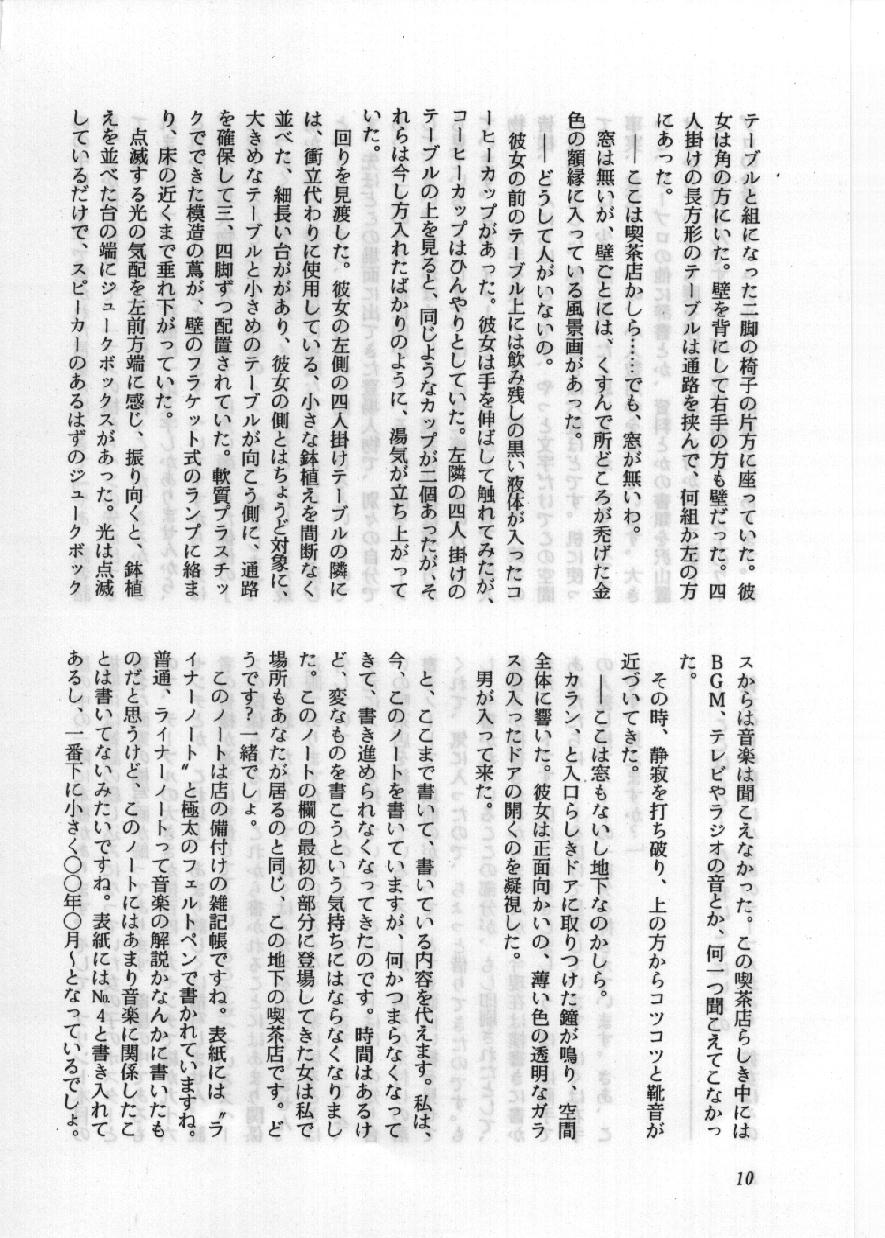 テーブルと組になった二脚の椅子の片方に座っていた。彼
女は角の方にいた。壁を背にして右手の方も壁だった。四
人掛けの長方形のテーブルは通路を挟んで、何組か左の方
にあった。
――ここは喫茶店かしら……でも、窓が無いわ。
窓は無いが、壁ごとには、くすんで所どころが禿げた金
色の額縁に入っている風景画があった。
――どうして人がいないの。
彼女の前のテーブル上には飲み残しの黒い液体が入ったコ
ーヒーカップがあった。彼女は手を伸ばして触れてみたが、
コーヒーカップはひんやりとしていた。左隣の四人掛けの
テーブルの上を見ると、同じようなカップが二個あったが、そ
れらは今し方入れたばかりのように、湯気が立ち上がって
いた。
回りを見渡した。彼女の左側の四人掛けテーブルの隣に
は、衝立代わりに使用している、小さな鉢植えを間断なく
並べた、細長い台ががあり、彼女の側とはちょうど対象に、
大きめなテーブルと小さめのテーブルが向こう側に、通路
を確保して三、四脚ずつ配置されていた。軟質プラスチッ
クでできた模造の蔦が、壁のフラケット式のランプに絡ま
り、床の近くまで垂れ下がっていた。
点滅する光の気配を左前方端に感じ、振り向くと、鉢植
えを並べた台の端にジュークボックスがあった。光は点滅
しているだけで、スピーカーのあるはずのジュークボック
スからは音楽は聞こえなかった。この喫茶店らしき中には
BGM、テレビやラジオの音とか、何一つ聞こえてこなかっ
た。
その時、静寂を打ち破り、上の方からコツコツと靴音が
近づいてきた。
――ここは窓もないし地下なのかしら。
カラン、と入口らしきドアに取りつけた鐘が鳴り、空間
全体に響いた。彼女は正面向かいの、薄い色の透明なガラ
スの入ったドアの開くのを凝視した。
男が入って来た。
と、ここまで書いて、書いている内容を代えます。私は、
今、このノートを書いていますが、何かつまらなくなって
きて、書き進められなくなってきたのです。時間はあるけ
ど、変なものを書こうという気持ちにはならなくなりまし
た。このノートの欄の最初の部分に登場してきた女は私で
場所もあなたが居るのと同じ、この地下の喫茶店です。ど
うです?一緒でしょ。
このノートは店の備付けの雑記帳ですね。表紙には〝ラ
イナーノート〟と極太のフェルトペンで書かれていますね。
普通、ライナーノートって音楽の解説かなんかに書いたも
のだと思うけど、このノートにはあまり音楽に関係したこ
とは書いてないみたいですね。表紙には№4と書き入れて
あるし、一番下に小さく〇〇年〇月~となっているでしょ。
10